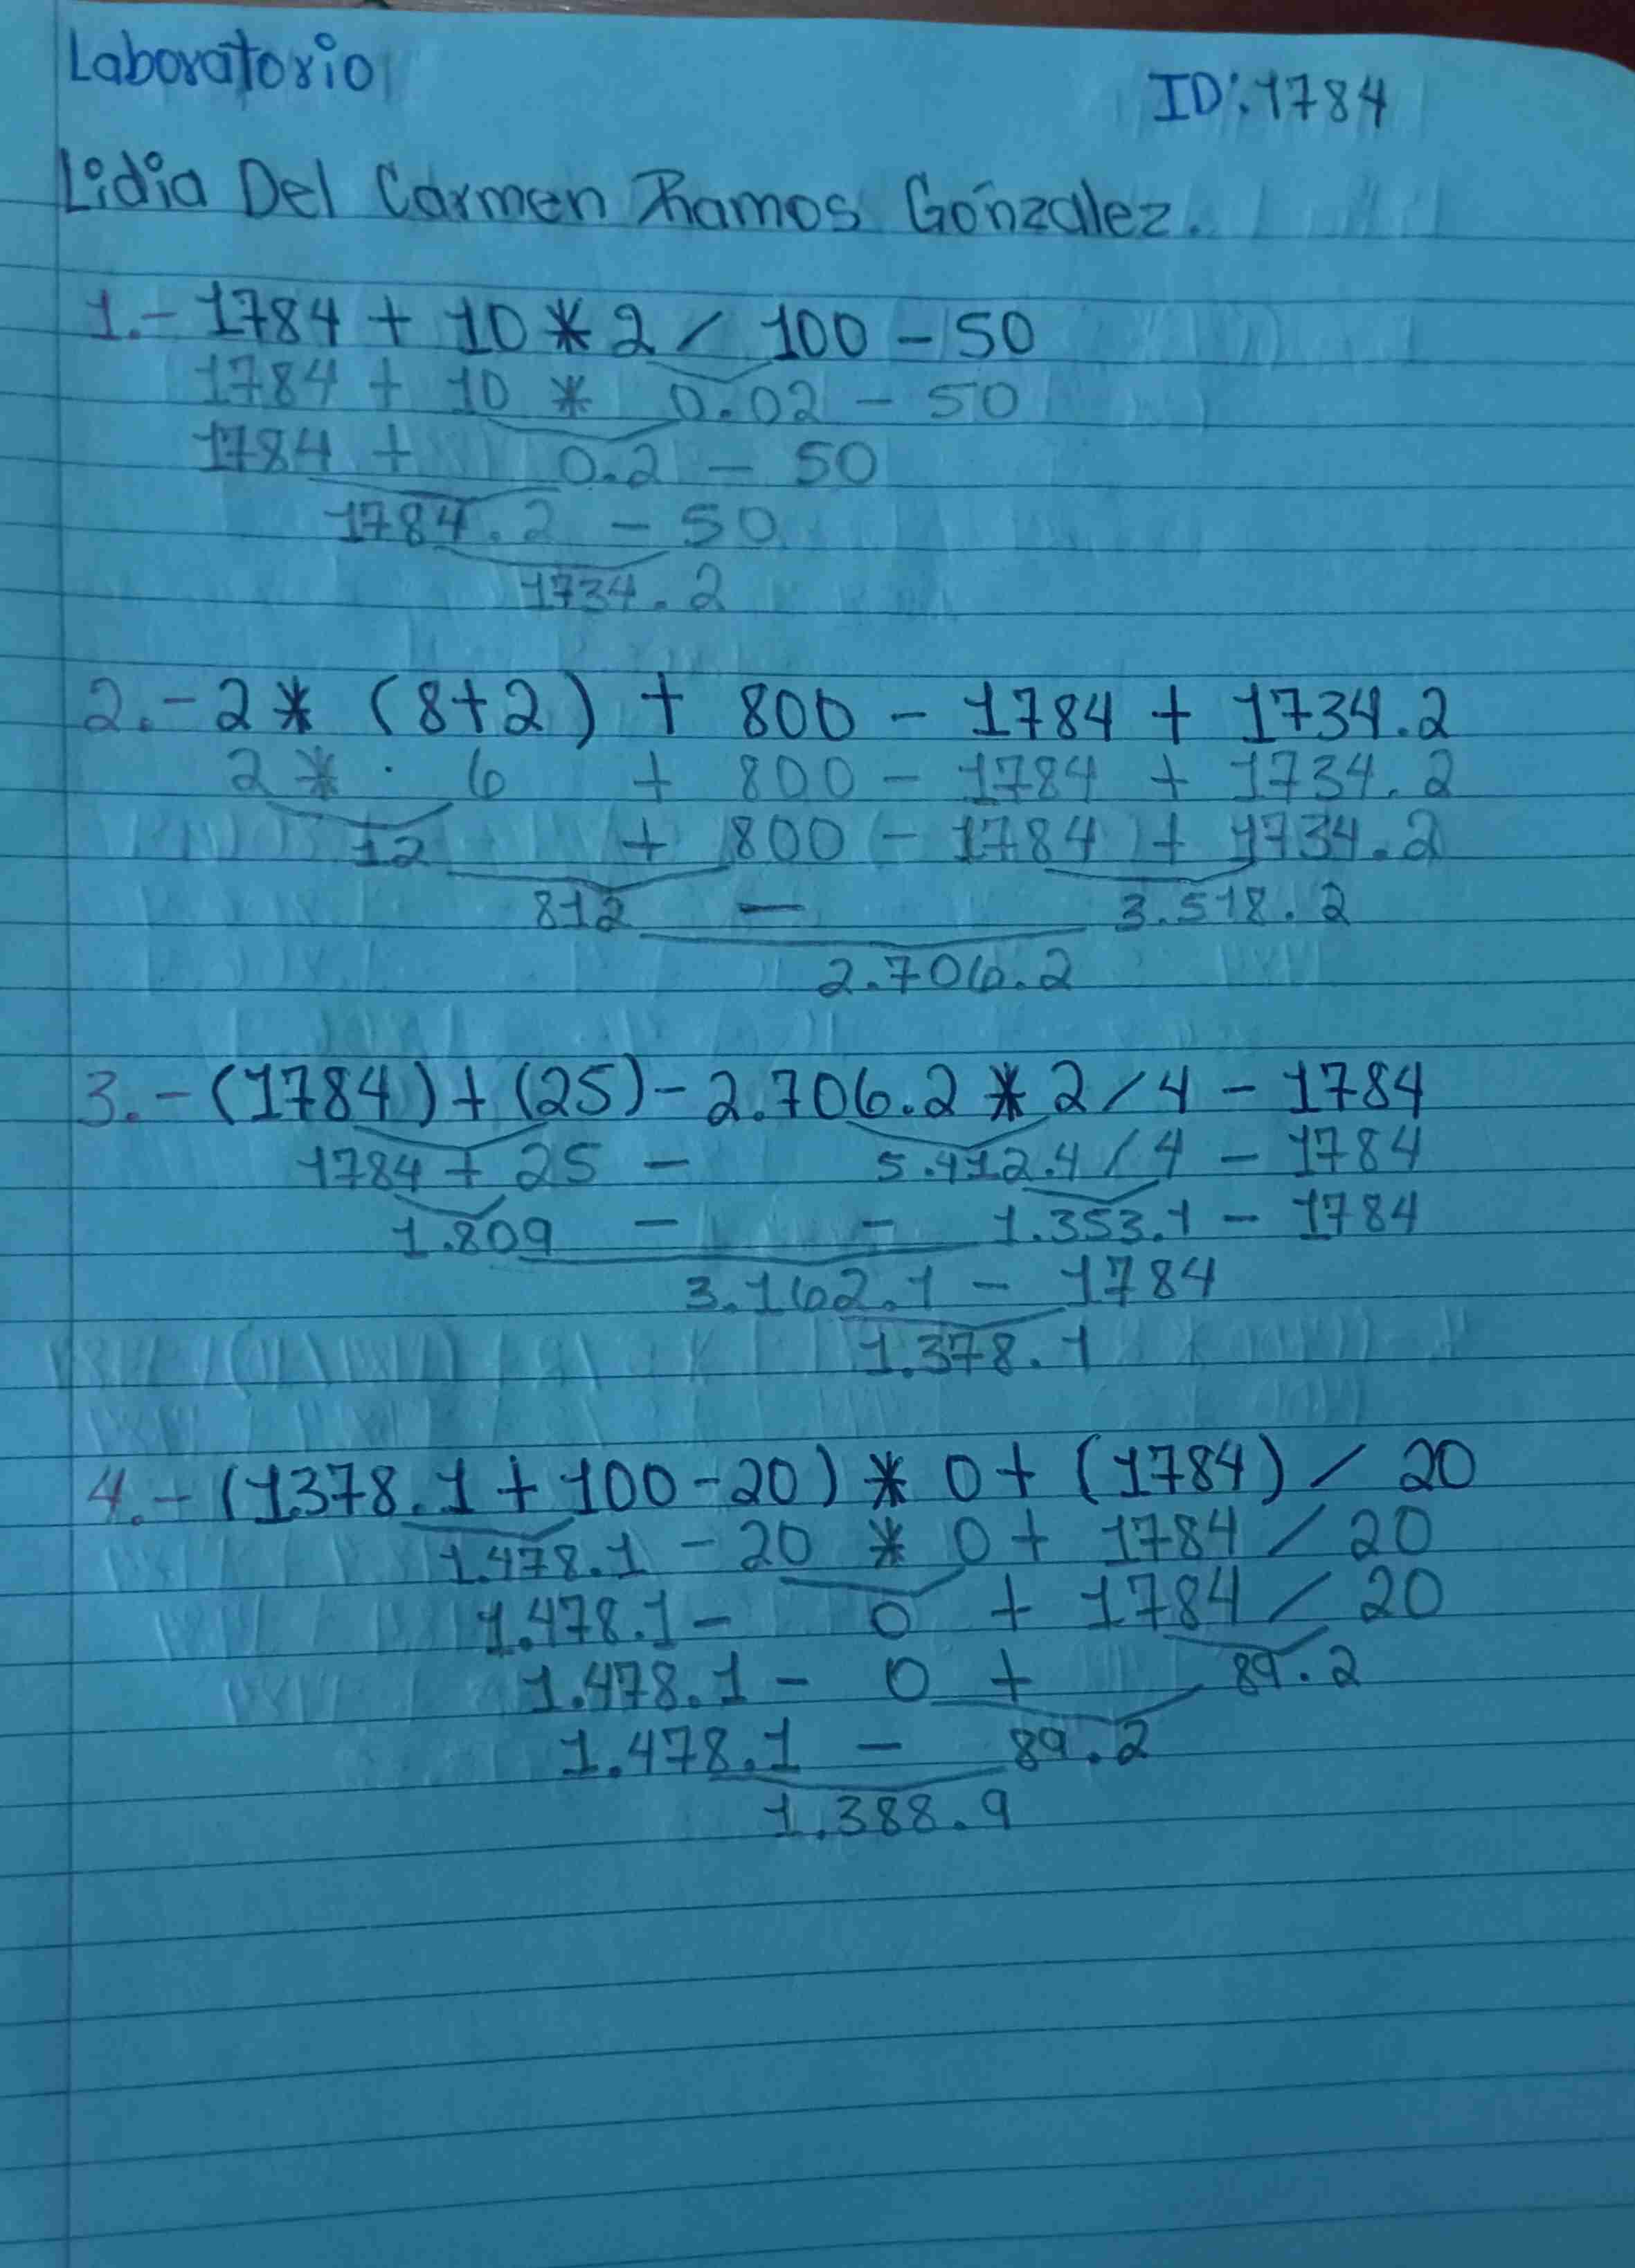 Laboratorio
ID: 1784
Lidia Del Carmen Ramos González.
1.- 1784 + 10 * 2 / 100 - 50
1784 + 10 * 0.02 - 50
1784 + 0.2 - 50
1784.2 - 50
1734.2
2.- 2 * (8+2) + 800 - 1784 + 1734.2
2 * · 6 + 800 - 1784 + 1734.2
12 + 800 - 1784 + 1734.2
812 - 3.518.2
2.706.2
3.- (1784) + (25) - 2.706.2 * 2 / 4 - 1784
1784 + 25 - 5.412.4 / 4 - 1784
1.809 - - 1.353.1 - 1784
3.162.1 - 1784
1.378.1
4.- (1378.1 + 100 - 20) * 0 + (1784) / 20
1.478.1 - 20 * 0 + 1784 / 20
1.478.1 - 0 + 1784 / 20
1.478.1 - 0 + 89.2
1.478.1 - 89.2
1.388.9